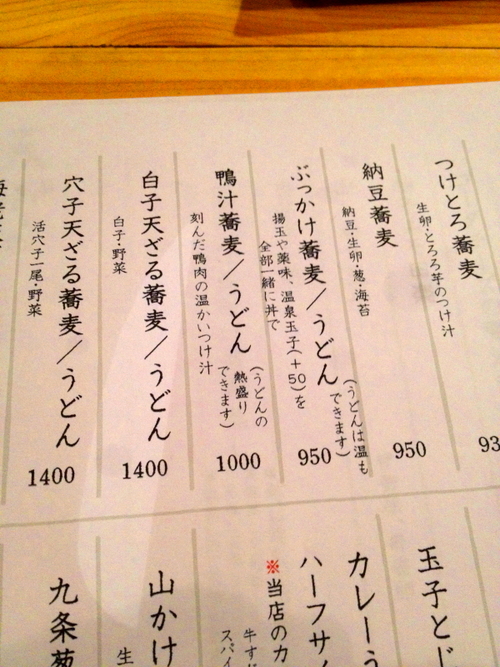 つけとろ蕎麦
生卵・とろろ芋のつけ汁
93
納豆蕎麦
納豆・生卵・葱・海苔
950
ぶっかけ蕎麦／うどん
(うどんは温も
できます)
揚玉や薬味、温泉玉子(＋50)を
全部一緒に丼で
950
鴨汁蕎麦／うどん
(うどんの
熱盛り
できます)
刻んだ鴨肉の温かいつけ汁
1000
白子天ざる蕎麦／うどん
白子・野菜
1400
穴子天ざる蕎麦／うどん
活穴子一尾・野菜
1400
玉子とじ
カレーう
ハーフサイ
※当店のカ
牛すじ
スパイ
山かけ
生
九条葱